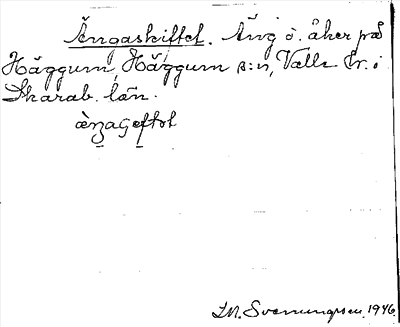 Ängaskiftet. Äng o. åker på
Häggum, Häggum s:n, Valle hr. i
Skarab. län.
I.M. Svenungsson. 1946.